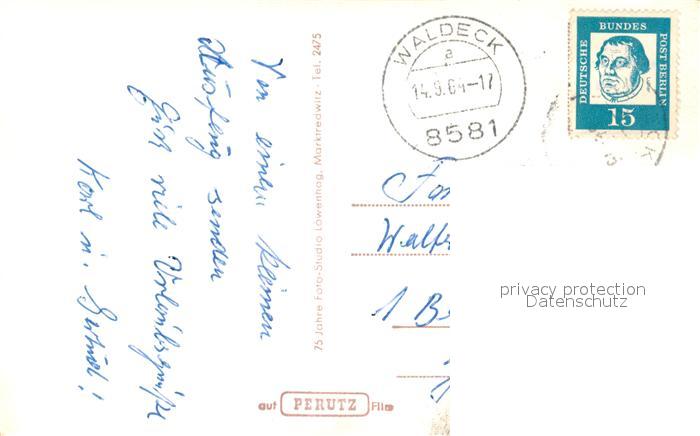 Von einem kleinen
Ausflug senden
Euch viele Urlaubsgrüße
Karl u. Gertrud!
75 Jahre Foto-Studio Löwenhag, Marktredwitz · Tel. 2475
auf PERUTZ Film
WALDECK
a
14.9.64-17
8581
DEUTSCHE BUNDES POST BERLIN
15
CK
Fam
Walt
1 B
privacy protection
Datenschutz